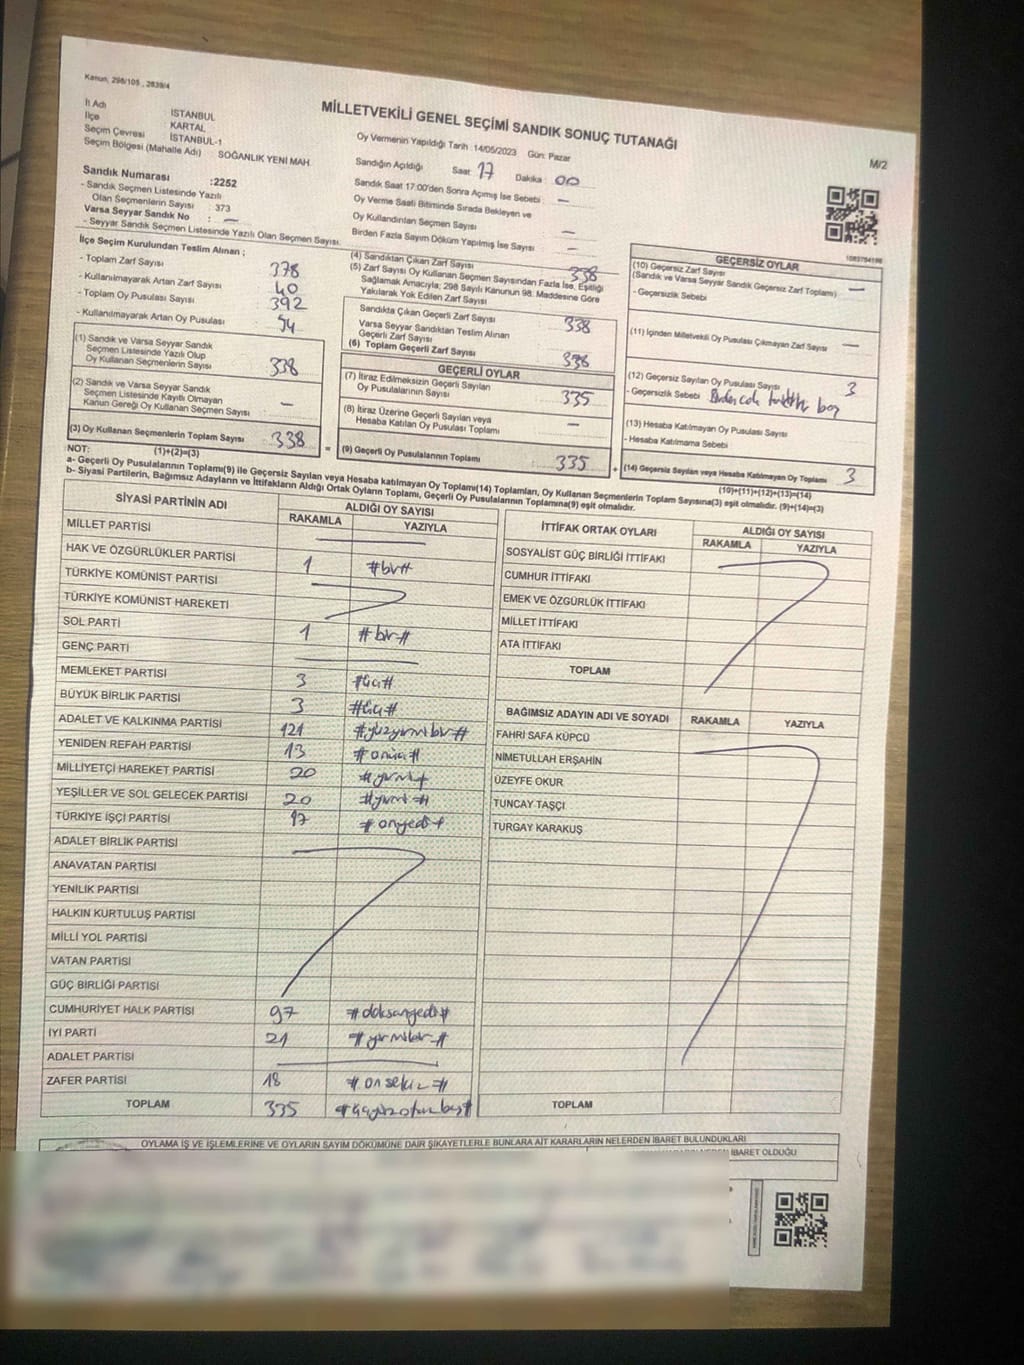 Kanun, 298/105 , 2839/4
MİLLETVEKİLİ GENEL SEÇİMİ SANDIK SONUÇ TUTANAĞI
M/2
İl Adı İSTANBUL
İlçe KARTAL
Seçim Çevresi İSTANBUL-1
Seçim Bölgesi (Mahalle Adı) SOĞANLIK YENİ MAH.
Sandık Numarası :2252
- Sandık Seçmen Listesinde Yazılı
Olan Seçmenlerin Sayısı : 373
Varsa Seyyar Sandık No : —
- Seyyar Sandık Seçmen Listesinde Yazılı Olan Seçmen Sayısı:
Oy Vermenin Yapıldığı Tarih :14/05/2023 Gün: Pazar
Sandığın Açıldığı Saat 17 Dakika : 00
Sandık Saat 17:00'den Sonra Açılmış İse Sebebi : —
Oy Verme Saati Bitiminde Sırada Bekleyen ve
Oy Kullandırılan Seçmen Sayısı —
Birden Fazla Sayım Döküm Yapılmış İse Sayısı : —
İlçe Seçim Kurulundan Teslim Alınan ;
- Toplam Zarf Sayısı 378
- Kullanılmayarak Artan Zarf Sayısı 40
- Toplam Oy Pusulası Sayısı 392
- Kullanılmayarak Artan Oy Pusulası 54
(1) Sandık ve Varsa Seyyar Sandık
Seçmen Listesinde Yazılı Olup
Oy Kullanan Seçmenlerin Sayısı 338
(2) Sandık ve Varsa Seyyar Sandık
Seçmen Listesinde Kayıtlı Olmayan
Kanun Gereği Oy Kullanan Seçmen Sayısı —
(3) Oy Kullanan Seçmenlerin Toplam Sayısı 338
(1)+(2)=(3)
(4) Sandıktan Çıkan Zarf Sayısı 338
(5) Zarf Sayısı Oy Kullanan Seçmen Sayısından Fazla İse, Eşitliği
Sağlamak Amacıyla; 298 Sayılı Kanunun 98. Maddesine Göre
Yakılarak Yok Edilen Zarf Sayısı
Sandıkta Çıkan Geçerli Zarf Sayısı 338
Varsa Seyyar Sandıktan Teslim Alınan
Geçerli Zarf Sayısı
(6) Toplam Geçerli Zarf Sayısı 338
GEÇERLİ OYLAR
(7) İtiraz Edilmeksizin Geçerli Sayılan
Oy Pusulalarının Sayısı 335
(8) İtiraz Üzerine Geçerli Sayılan veya
Hesaba Katılan Oy Pusulası Toplamı —
= (9) Geçerli Oy Pusulalarının Toplamı 335 +
GEÇERSİZ OYLAR
(10) Geçersiz Zarf Sayısı
(Sandık ve Varsa Seyyar Sandık Geçersiz Zarf Toplamı) —
- Geçersizlik Sebebi
(11) İçinden Milletvekili Oy Pusulası Çıkmayan Zarf Sayısı —
(12) Geçersiz Sayılan Oy Pusulası Sayısı 3
- Geçersizlik Sebebi
(13) Hesaba Katılmayan Oy Pusulası Sayısı
- Hesaba Katılmama Sebebi
(14) Geçersiz Sayılan veya Hesaba Katılmayan Oy Toplamı 3
(10)+(11)+(12)+(13)=(14)
NOT:
a- Geçerli Oy Pusulalarının Toplamı(9) ile Geçersiz Sayılan veya Hesaba Katılmayan Oy Toplamı(14) Toplamları, Oy Kullanan Seçmenlerin Toplam Sayısına(3) eşit olmalıdır. (9)+(14)=(3)
b- Siyasi Partilerin, Bağımsız Adayların ve İttifakların Aldığı Ortak Oyların Toplamı, Geçerli Oy Pusulalarının Toplamına(9) eşit olmalıdır.
SİYASİ PARTİNİN ADI ALDIĞI OY SAYISI
RAKAMLA YAZIYLA
MİLLET PARTİSİ
HAK VE ÖZGÜRLÜKLER PARTİSİ 1 #bir#
TÜRKİYE KOMÜNİST PARTİSİ
TÜRKİYE KOMÜNİST HAREKETİ
SOL PARTİ 1 #bir#
GENÇ PARTİ
MEMLEKET PARTİSİ 3 #üç#
BÜYÜK BİRLİK PARTİSİ 3 #üç#
ADALET VE KALKINMA PARTİSİ 121 #yüzyirmibir#
YENİDEN REFAH PARTİSİ 13 #onüç#
MİLLİYETÇİ HAREKET PARTİSİ 20 #yirmi#
YEŞİLLER VE SOL GELECEK PARTİSİ 20 #yirmi#
TÜRKİYE İŞÇİ PARTİSİ 17 #onyedi#
ADALET BİRLİK PARTİSİ
ANAVATAN PARTİSİ
YENİLİK PARTİSİ
HALKIN KURTULUŞ PARTİSİ
MİLLİ YOL PARTİSİ
VATAN PARTİSİ
GÜÇ BİRLİĞİ PARTİSİ
CUMHURİYET HALK PARTİSİ 97 #doksanyedi#
İYİ PARTİ 21 #yirmibir#
ADALET PARTİSİ
ZAFER PARTİSİ 18 #onsekiz#
TOPLAM 335 #üçyüzotuzbeş#
İTTİFAK ORTAK OYLARI ALDIĞI OY SAYISI
RAKAMLA YAZIYLA
SOSYALİST GÜÇ BİRLİĞİ İTTİFAKI
CUMHUR İTTİFAKI
EMEK VE ÖZGÜRLÜK İTTİFAKI
MİLLET İTTİFAKI
ATA İTTİFAKI
TOPLAM
BAĞIMSIZ ADAYIN ADI VE SOYADI RAKAMLA YAZIYLA
FAHRİ SAFA KÜPCÜ
NİMETULLAH ERŞAHİN
ÜZEYFE OKUR
TUNCAY TAŞÇI
TURGAY KARAKUŞ
TOPLAM
OYLAMA İŞ VE İŞLEMLERİNE VE OYLARIN SAYIM DÖKÜMÜNE DAİR ŞİKAYETLERLE BUNLARA AİT KARARLARIN NELERDEN İBARET BULUNDUKLARI
İBARET OLDUĞU